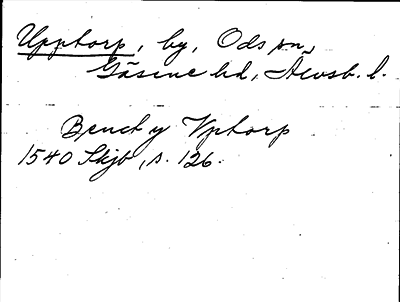 Upptorp, by, Ods sn,
Gäsene hd, Älvsb. l.
Bencht y Vptorp
1540 Skjb, s. 126.